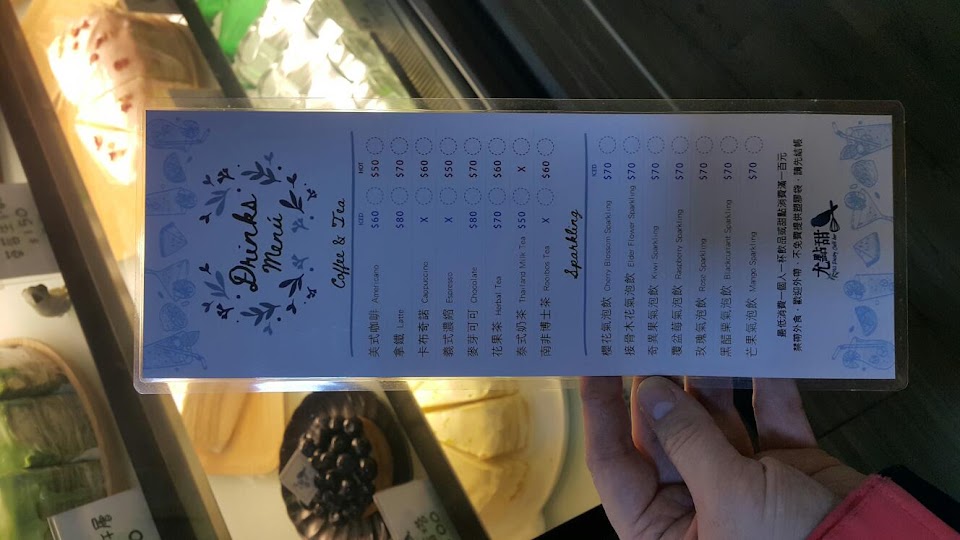 Drinks
Menú
Coffee & Tea
ICED HOT
美式咖啡 Americano $60 $50
拿鐵 Latte $80 $70
卡布奇諾 Capuccino X $60
義式濃縮 Espresso X $50
麥芽可可 Chocolate $80 $70
花果茶 Herbal Tea $70 $60
泰式奶茶 Thailand Milk Tea $50 X
南非博士茶 Rooibos Tea X $60
Sparkling
ICED
櫻花氣泡飲 Cherry Blossom Sparkling $70
接骨木花氣泡飲 Elder Flower Sparkling $70
奇異果氣泡飲 Kiwi Sparkling $70
覆盆莓氣泡飲 Raspberry Sparkling $70
玫瑰氣泡飲 Rose Sparkling $70
黑醋栗氣泡飲 Blackcurrant Sparkling $70
芒果氣泡飲 Mango Sparkling $70
最低消費一個人一杯飲品或甜點消費滿一百元
禁帶外食，歡迎外帶，不免費提供塑膠袋，請先結帳
尤點甜
$150